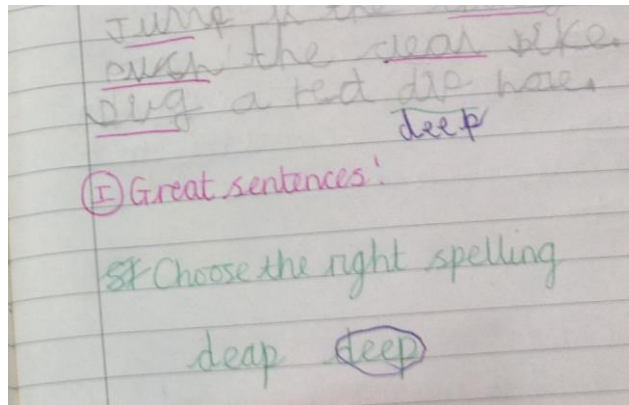 the
the bike.
Dug a red dip hole.
deep
I Great sentences!
St Choose the right spelling
deap deep